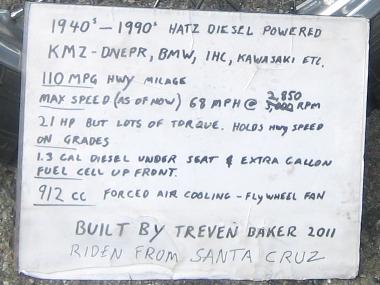 1940s — 1990s HATZ DIESEL POWERED
KMZ - DNEPR, BMW, IHC, KAWASAKI ETC.
110 MPG HWY MILAGE
MAX SPEED (AS OF NOW) 68 MPH @ 2,850 3,000 RPM
21 HP BUT LOTS OF TORQUE. HOLDS HWY SPEED
ON GRADES
1.3 GAL DIESEL UNDER SEAT & EXTRA GALLON
FUEL CELL UP FRONT.
912 CC FORCED AIR COOLING - FLYWHEEL FAN
BUILT BY TREVEN BAKER 2011
RIDEN FROM SANTA CRUZ